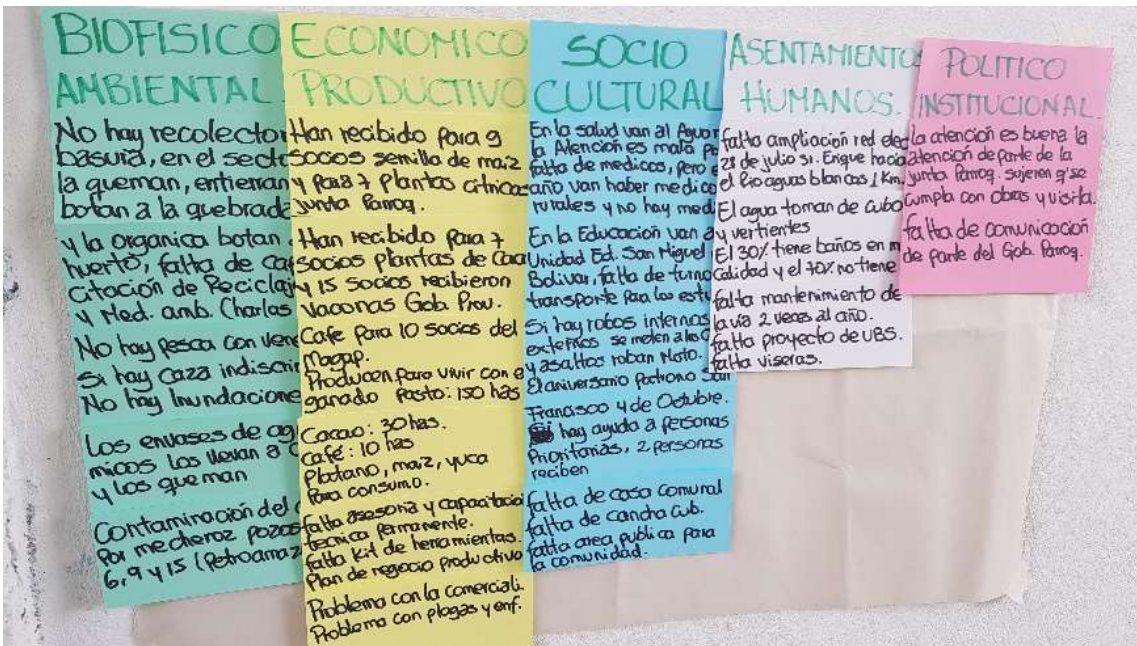 BIOFISICO
AMBIENTAL.
No hay recolector
basura, en el sect
la queman, entierran
botan a la quebrada
y la organica botan
huerto, falta de cap
citación de Reciclaj
y Med. amb. Charlas
No hay pesca con vene
Si hay caza indiscri
No hay Inundacione
Los envases de ag
micos los llevan a
y los queman
Contaminación del
Por mecheroz pozos
6, 9 y 15 (Petroamaz
ECONOMICO
PRODUCTIVO
Han recibido Para 9
socios semilla de maiz
y Para 7 Plantas citricas
Junta Parroq.
Han recibido Para 7
socios plantas de Caca
y 15 socios recibieron
Vaconas Gob. Prov.
Cafe Para 10 socios del
Magap.
Producen para vivir con e
ganado Pasto: 150 has
Cacao: 30 has.
Café: 10 has
Platano, maiz, yuca
Para consumo.
falta asesoria y capacitació
tecnica Permanente.
falta Kit de herramientas.
Plan de negocio productivo
Problema con la comerciali.
Problema con plagas y enf.
SOCIO
CULTURAL
En la salud van al Aguar
la Atención es mala Po
falta de medicos, pero e
año van haber medico
rurales y no hay med
En la Educación van a
Unidad Ed. San Miguel
Bolivar, falta de turno
transporte Para los estu
Si hay robos internos
externos se meten a las
y asaltos roban Moto.
El aniversario Patrono San
Francisco 4 de Octubre.
Si hay ayuda a personas
Prioritarias, 2 personas
reciben
falta de casa Comunal
falta de cancha Cub.
falta area publica para
la comunidad.
ASENTAMIENTOS
HUMANOS.
falta ampliación red elec
28 de julio Sr. Enrique hacia
el Rio aguas blancas 1 Km.
El agua toman de Cubo
y vertientes
El 30% tiene baños en m
calidad y el 70% no tiene
falta mantenimiento de
la via 2 veces al año.
falta proyecto de UBS.
falta viseras.
POLITICO
INSTITUCIONAL.
la atención es buena la
atención de parte de la
Junta Parroq. sujeren q' se
cumpla con obras y visita.
falta de comunicación
de parte del Gob. Parroq.